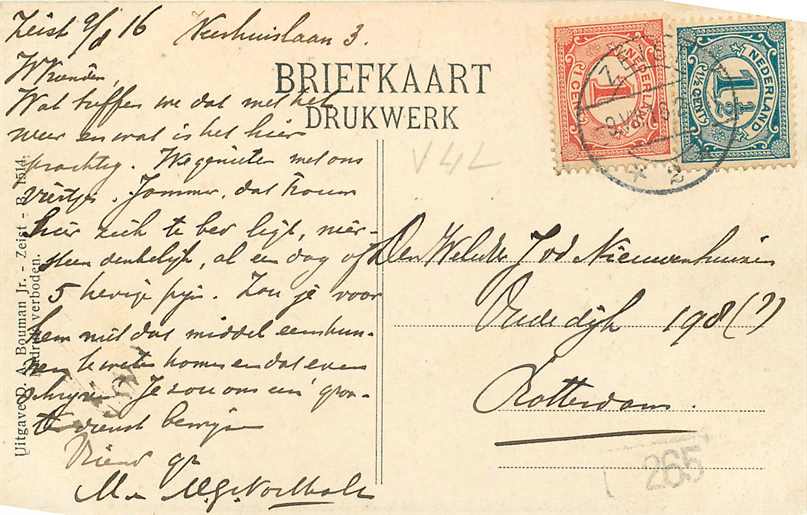 Zeist 9/8 16 Kerhuislaan 3.
BRIEFKAART
DRUKWERK
Vrienden,
Wat treffen we dat met het
weer en wat is het hier
prachtig. We genieten met ons
viertjes. Jammer, dat Truus
hier ziek te bed ligt, nier-
steen denkelijk, al een dag of
5 hevige pijn. Zou je voor
hem niet dat middel eens kun-
nen te weten komen en dat even
schrijven. Je zou ons een groo-
te dienst bewijzen
Vriend. gr.
M. en
Den Weled. Nieuwenhuizen
Oudedijk 198 (?)
Rotterdam.
NEDERLAND
1
1 CENT
NEDERLAND
1½
1½ CENT
V4L
265
Uitgave D. A. Bouman Jr. - Zeist - R. 1514.
Nadruk verboden.